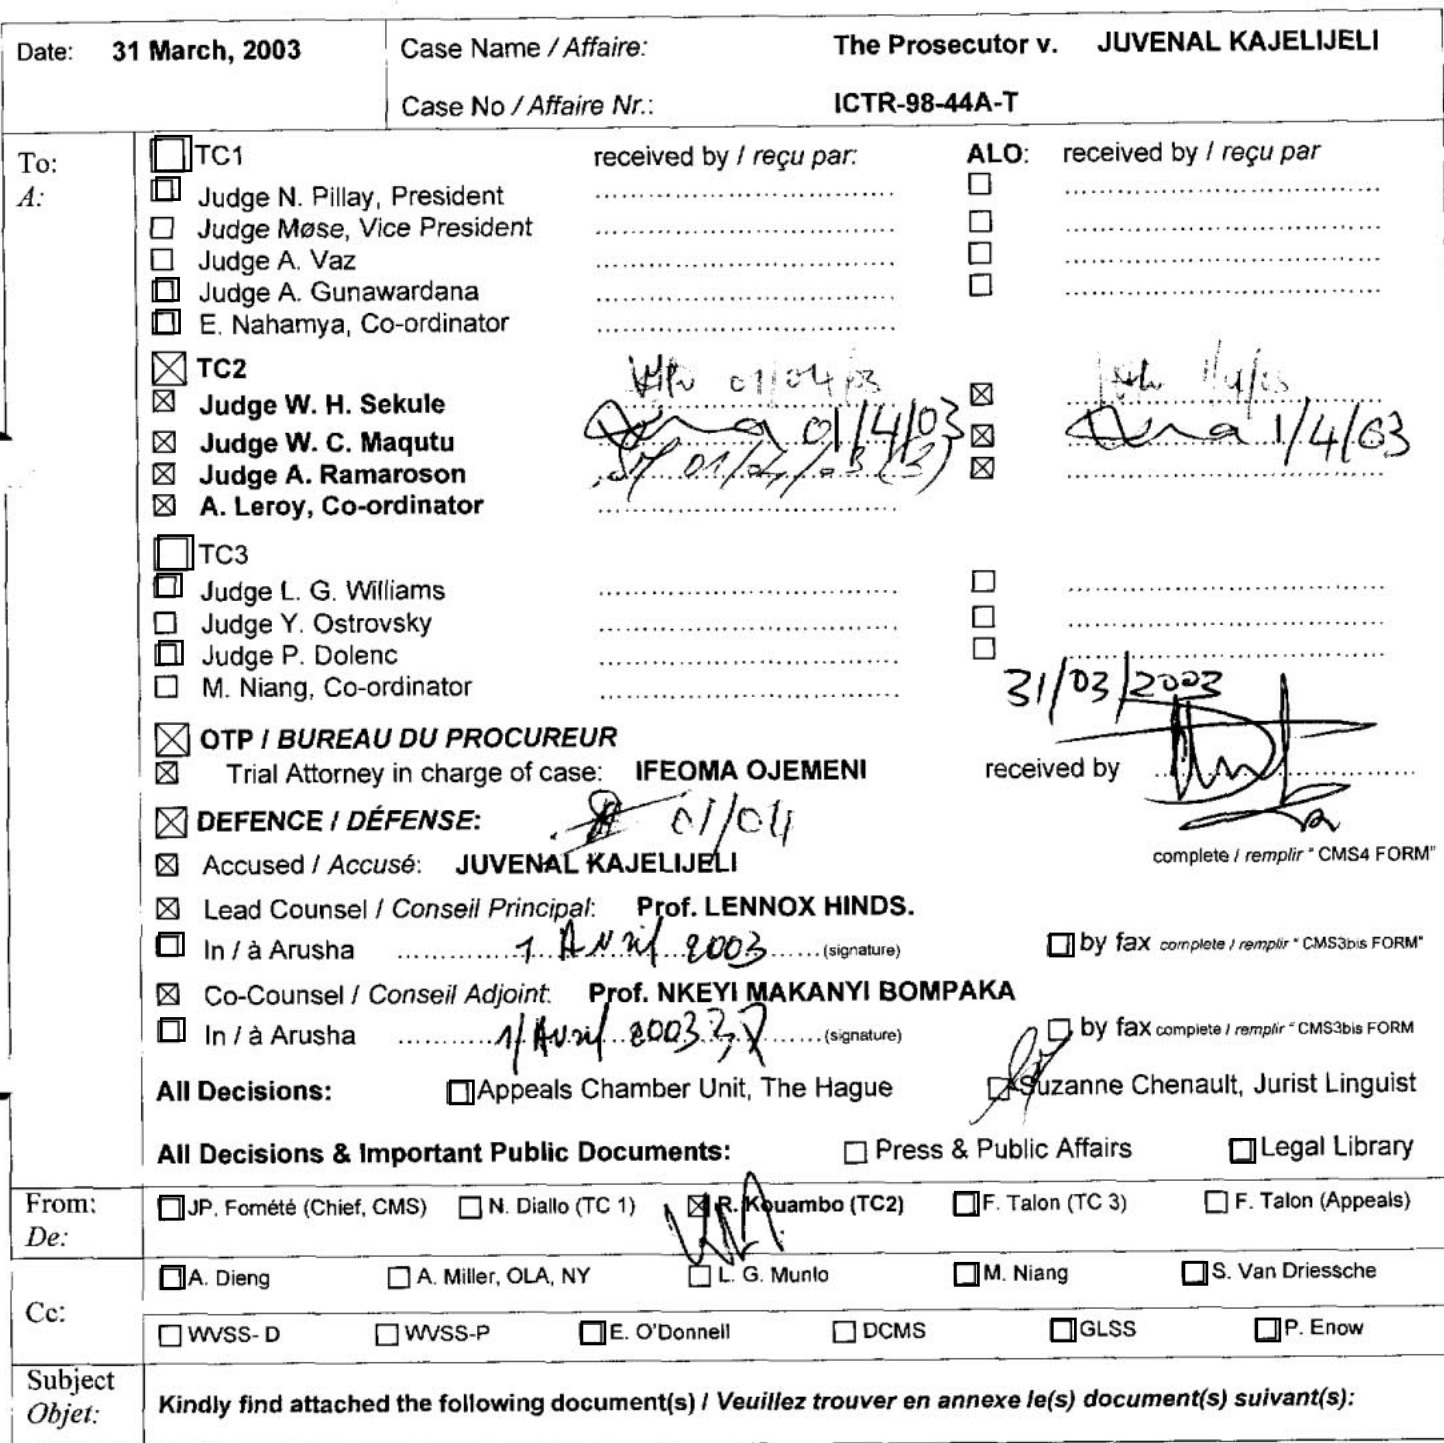 Date: 31 March, 2003 Case Name / Affaire: The Prosecutor v. JUVENAL KAJELIJELI
Case No / Affaire Nr.: ICTR-98-44A-T
To: TC1 received by / reçu par: ALO: received by / reçu par
A: Judge N. Pillay, President
Judge Møse, Vice President
Judge A. Vaz
Judge A. Gunawardana
E. Nahamya, Co-ordinator
TC2 01/04/03
Judge W. H. Sekule
Judge W. C. Maqutu 01/4/03 1/4/03
Judge A. Ramaroson
A. Leroy, Co-ordinator
TC3
Judge L. G. Williams
Judge Y. Ostrovsky
Judge P. Dolenc
M. Niang, Co-ordinator 31/03/2003
OTP / BUREAU DU PROCUREUR
Trial Attorney in charge of case: IFEOMA OJEMENI received by
DEFENCE / DÉFENSE: 01/04
complete / remplir " CMS4 FORM"
Accused / Accusé: JUVENAL KAJELIJELI
Lead Counsel / Conseil Principal: Prof. LENNOX HINDS.
In / à Arusha 1 Avril 2003 (signature) by fax complete / remplir " CMS3bis FORM"
Co-Counsel / Conseil Adjoint: Prof. NKEYI MAKANYI BOMPAKA
In / à Arusha 1/Avril 2003 (signature) by fax complete / remplir " CMS3bis FORM
All Decisions: Appeals Chamber Unit, The Hague Suzanne Chenault, Jurist Linguist
All Decisions & Important Public Documents: Press & Public Affairs Legal Library
From: JP. Fomété (Chief, CMS) N. Diallo (TC 1) R. Kouambo (TC2) F. Talon (TC 3) F. Talon (Appeals)
De:
A. Dieng A. Miller, OLA, NY L. G. Munlo M. Niang S. Van Driessche
Cc:
WVSS- D WVSS-P E. O'Donnell DCMS GLSS P. Enow
Subject
Objet: Kindly find attached the following document(s) / Veuillez trouver en annexe le(s) document(s) suivant(s):